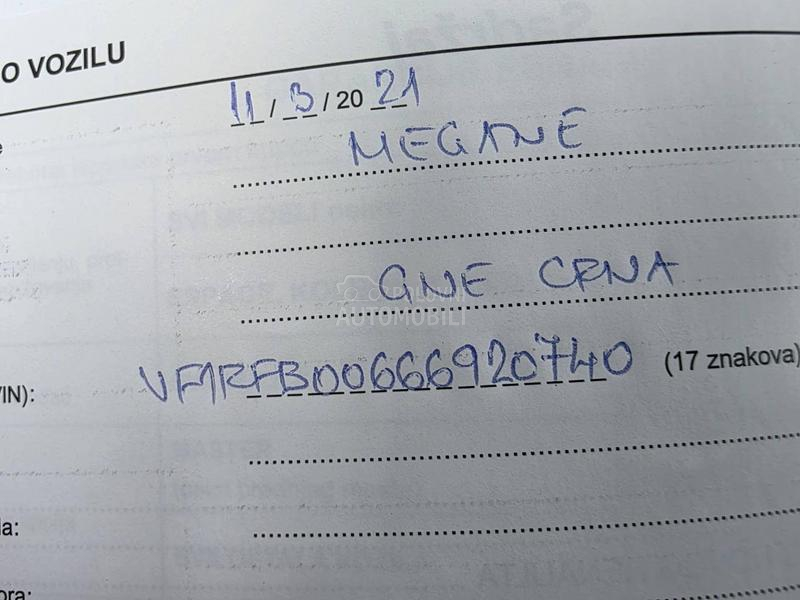 O VOZILU
11 / 3 / 20 21
MEGANE
GNE CRNA
POLOVNI
AUTOMOBILI
VIN): VF1RFB00666920740 (17 znakova)
MASTER